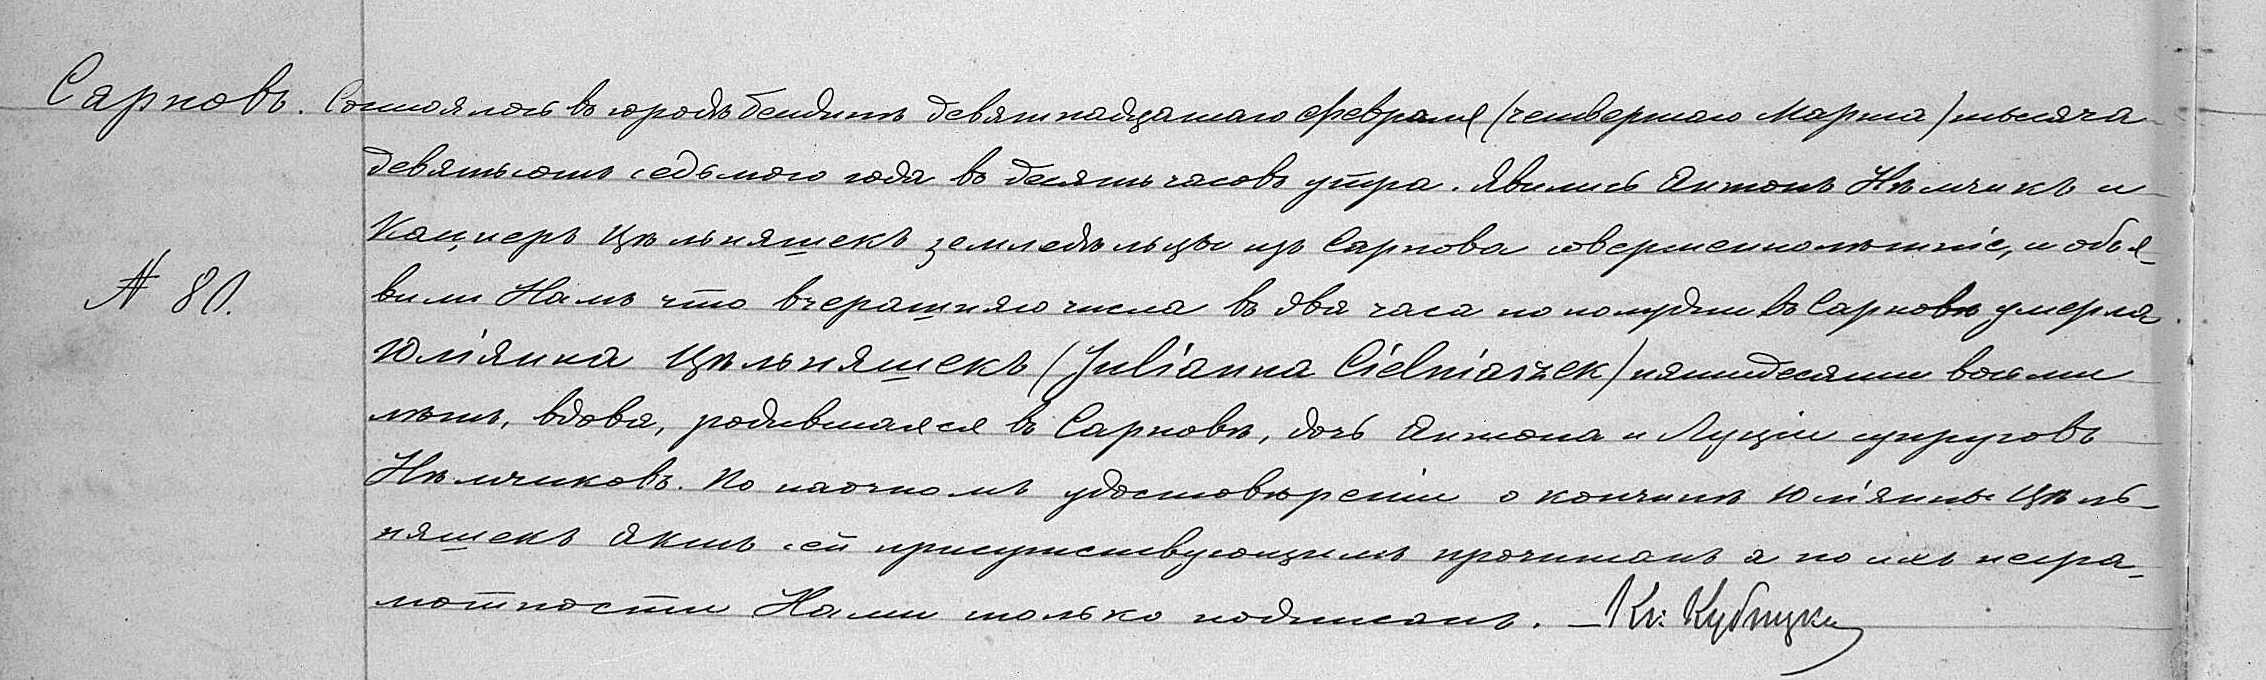 Сарновъ. Состоялось въ городѣ Бендинѣ девятнадцатаго Февраля (четвертаго Марта) тысяча
девятьсотъ седьмого года въ десять часовъ утра. Явились Антонъ Нѣмчикъ и
Кацперъ Цѣльняшекъ земледѣльцы изъ Сарнова совершеннолѣтніе, и объя-
№ 80.
вили Намъ что вчерашняго числа въ два часа по полудни въ Сарновѣ умерла
Юліянна Цѣльняшекъ (Julianna Cielniaszek) пятидесяти восьми
лѣтъ, вдова, родившаяся въ Сарновѣ, дочь Антона и Луціи супруговъ
Нѣмчиковъ. По наочномъ удостовѣреніи о кончинѣ Юліянны Цѣль-
няшекъ Актъ сей присутствующимъ прочитанъ а по ихъ негра-
мотности Нами только подписанъ. – Кс: Кубицки